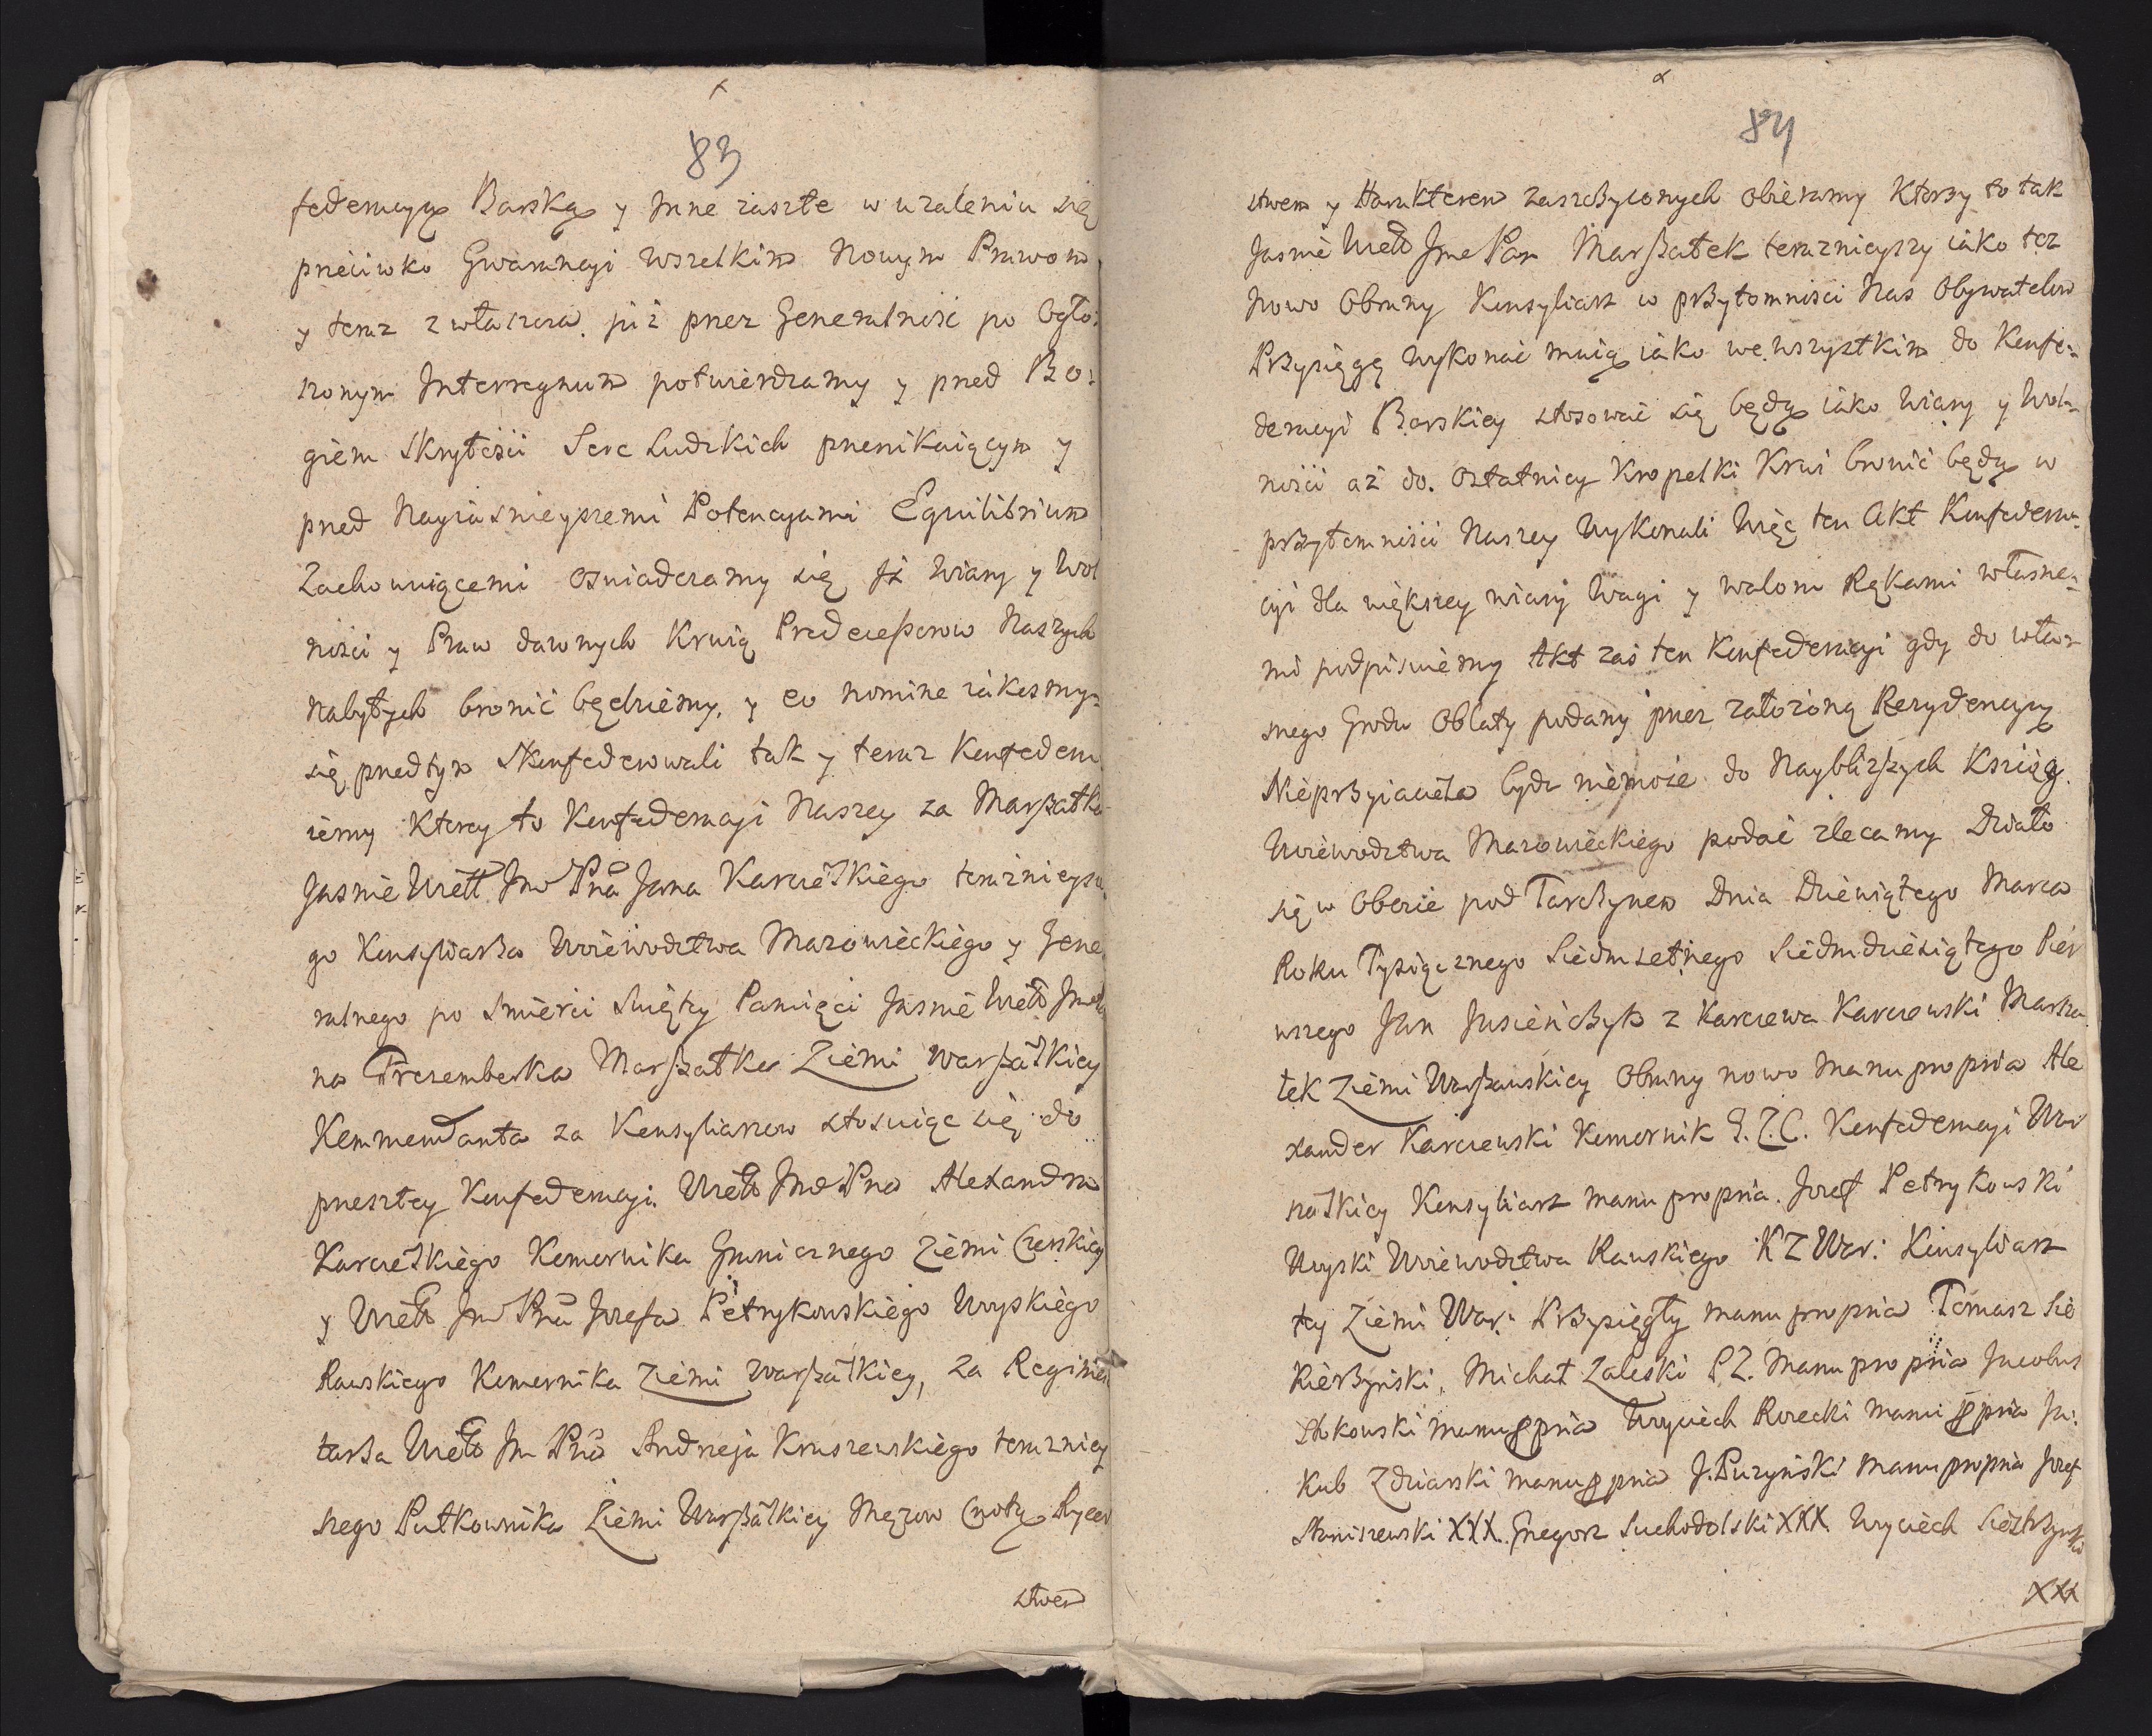 83
federacyą Barską y Inne zaszłe w użaleniu się
przeciwko Gwarancyi wszelkim Nowym Prawom
y teraz zwłaszcza już przez Generalność po Ogło:
szonym Interregnum potwierdzamy y przed Bo:
giem Skrytości Serc Ludzkich przenikaiącym y
przed Nayiasnieyszemi Potencyami Equilibrium
Zachowuiącemi oswiadczamy się Iż Wiary y Wol
ności y Praw dawnych Krwią Predecessorow Naszych
Nabytych bronić będziemy, y eo nomine iakesmy
się przedtym Skonfederowali tak y teraz Konfederu
iemy Ktorey to Konfederacyi Naszey za Marszałka
Jasnie Wielł Jmo Pna Jana Karczewskiego teraznieysze
go Konsyliarza Woiewodztwa Mazowieckiego y Gene
ralnego po Smierci Swiętey Pamięci Jasnie Wiello Jmo
na Trzcembeka Marszałka Ziemi Warszawskiey
Kommendanta za Konsyliarzow stosuiąc się do
przeszłey Konfederacyi Wiello Jmo Pna Alexandra
Karczewskiego Komornika Granicznego Ziemi Czerskiey
y Wiello Jmo Pna Jozefa Petrykowskiego Woyskiego
Rawskiego Komornika Ziemi Warszawskiey, za Regimen
tarza Wiello Jm Pna Andrzeja Kruszewskiego teraznieey
szego Pułkownika Ziemi Warszawskiey Mężow Cnotą Rycer
stwem
84
stwem y Harakterem zaszczyconych obieramy Ktorzy to tak
Jasnie Wiello Jmc Pan Marszałek teraznieyszy iako tez
Nowo Obrany Konsyliarz w przytomności Nas Obywatelow
Przysięgę wykonać maią iako we wszystkim do Konfe-
deracyi Barskiey stosować się będą iako Wiary y Wol-
ności aż do Ostatniey Kropelki Krwi bronić będą w
przytomności Naszey Wykonali Więc ten Akt Konfedera-
cyi dla większey wiary Wagi y waloru Rękami własne-
mi podpisuiemy Akt zaś ten Konfederacyi gdy do wła-
snego Grodu Oblaty podany przez założoną Rezydencyą
Nieprzyiaciela bydz niemoże do Naybliższych Ksiąg
Woiewodztwa Mazowieckiego podać zlecamy Działo
się w Obozie pod Tarczynem Dnia Dziewiątego Marca
Roku Tysiącznego Siedmsetnego Siedmdziesiątego Pier
wszego Jan Jusieńczyk z Karczewa Karczewski Marsza
łek Ziemi Warszawskiey Obrany nowo Manu propria Ale
xander Karczewski Komornik G. Z. C. Konfederacyi War
szawskiey Konsyliarz manu propria. Jozef Petrykowski
Woyski Woiewodztwa Rawskiego K Z War: Konsyliarz
tey Ziemi War: Przysięgły manu propria Tomasz Sie
kierzyński, Michał Zaleski P Z. Manu propria Jacobus
Stokowski manu ppria Woyciech Rozecki manu ppria Ja:
kub Zdziarski manu ppria J. Puzyński manu propria Jozef
Staniszewski XXX. Gregorz Suchodolski XXX. Woyciech Siestrzyński
XXX